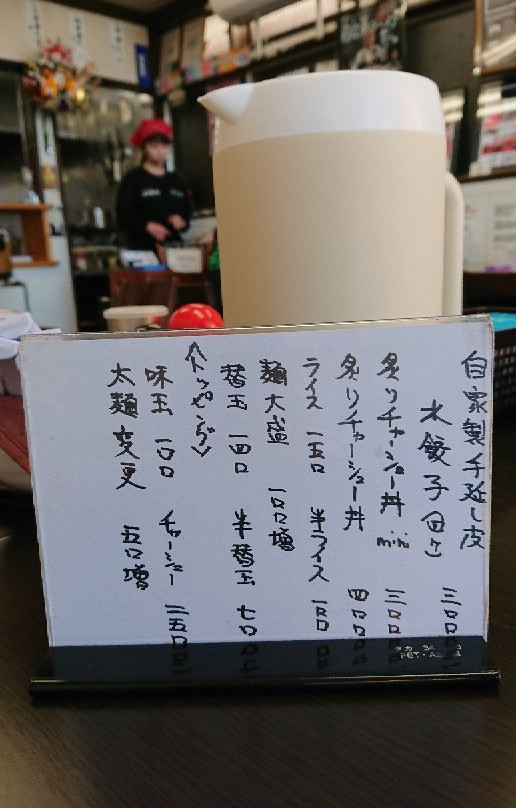 自家製手延し皮
水餃子(四ケ) 三〇〇
炙りチャーシュー丼 mini 三〇〇
炙りチャーシュー丼 四〇〇
ライス 一五〇 半ライス 一〇〇
麺大盛 一〇〇増
替玉 一四〇 半替玉 七〇
〈トッピング〉
味玉 一〇〇 チャーシュー 二五〇
太麺変更 五〇増